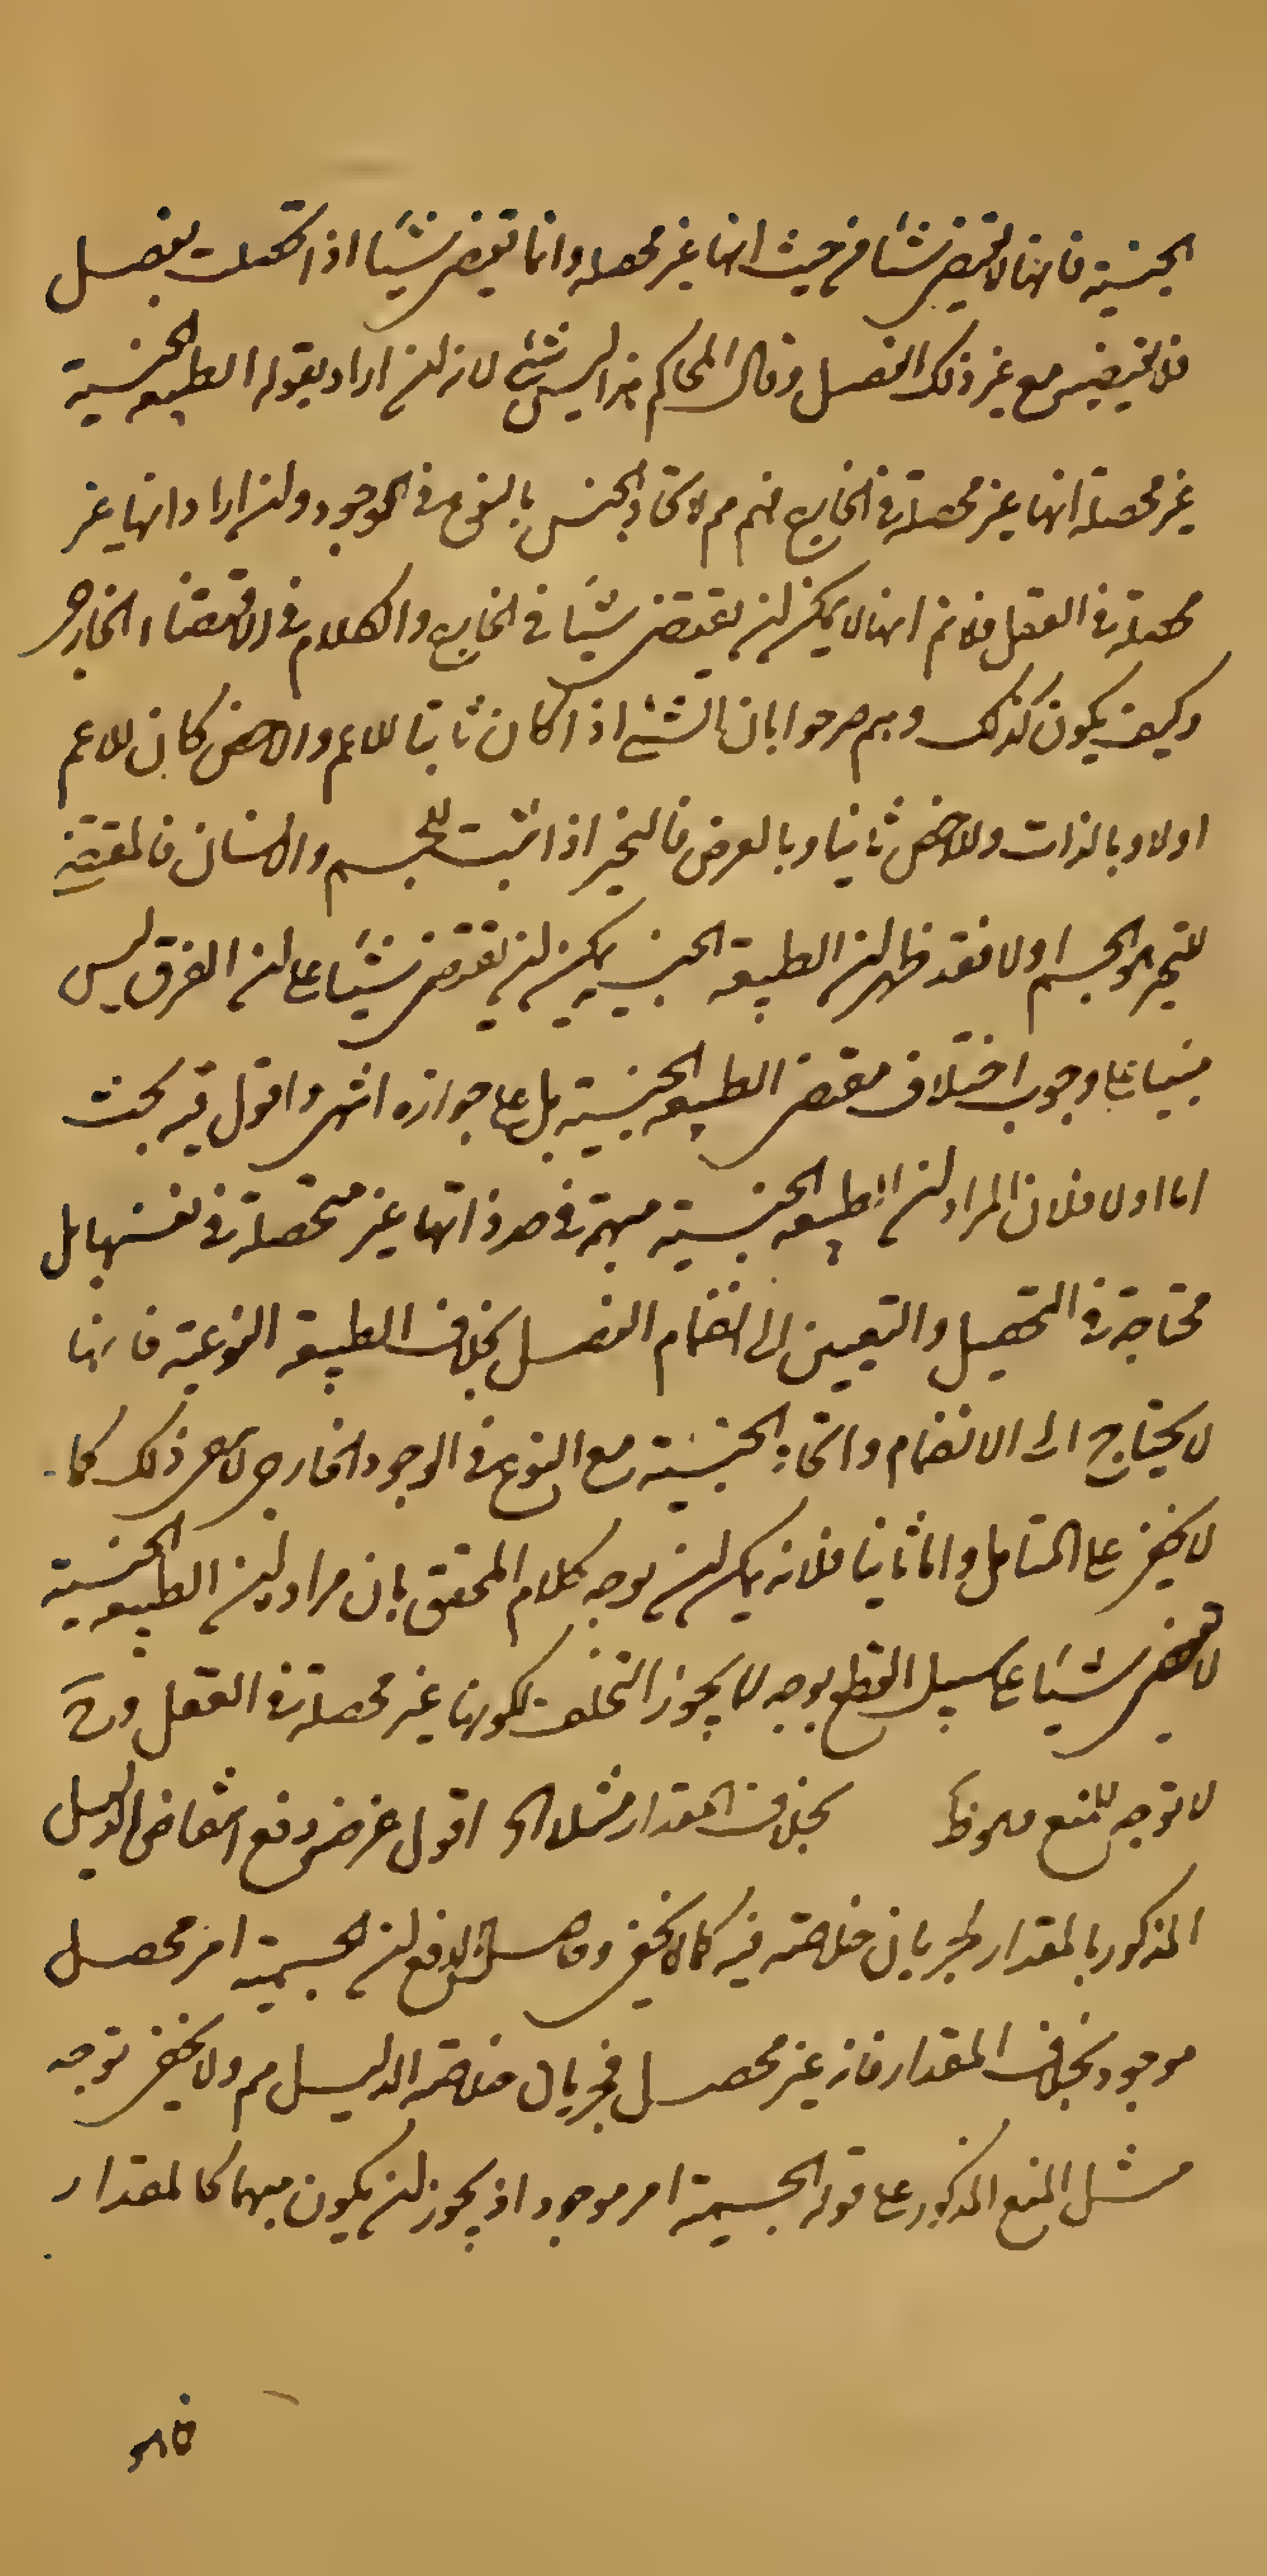 الجنسية فانها لا تقتضى شيئا من حيث انها غير محصلة وانما تقتضى شيئا اذا تحصلت بفصل
فلا تقتضيه مع غير ذلك الفصل وقال المحاكم هذا ليس بشئ لانه لن اراد بقوله الطبيعة الجنسية
غير محصلة انها غير محصلة فى الخارج فهم مم لاتحاد الجنس بالنوع فى الوجود ولن اراد انها غير
محصلة فى العقل فلانم انها لا يمكن لن يقتضى شيئا فى الخارج والكلام فى الاقتضاء الخارجى
وكيف يكون كذلك وهم صرحوا بان الشئ اذا كان ثابتا للاعم والاخص كان للاعم
اولا وبالذات وللاخص ثانيا وبالعرض فالتحيز اذا ثبت للجسم والانسان فالمقتضى
للتحيز هو الجسم اولا فقد ظهر لن الطبيعة الجنسية يمكن لن يقتضى شيئا على لن الفرق ليس
مبنيا على وجوب اختلاف مقتضى الطبيعة الجنسية بل على جوازه انتهى واقول فيه بحث
اما اولا فلان المراد لن الطبيعة الجنسية مبهمة فى حد ذاتها غير متحصلة فى نفسها بل
محتاجة فى التحصيل والتعيين الى انضمام الفصل بخلاف الطبيعة النوعية فانها
لا يحتاج الى الانضمام واتحاد الجنسية مع النوع فى الوجود الخارجى لا ينافى ذلك كما
لا يخفى على المتامل واما ثانيا فلانه يمكن لن يوجه كلام المحقق بان مراده لن الطبيعة الجنسية
لا تقتضى شيئا على سبيل القطع بوجه لا يجوز التخلف لكونها غير محصلة فى العقل وح
لا توجه للمنع بخلاف المقدار مثلا الخ اقول غرض دفع انتقاض الدليل
المذكور بالمقدار لجريان خلاصته فيه كما لا يخفى وحاصل الدفع لن الجسمية امر محصل
موجود بخلاف المقدار فانه غير محصل فجريان خلاصة الدليل مم ولا يخفى توجه
مثل المنع المذكور على قوله الجسمية امر موجود اذ يجوز لن يكون مبهما كالمقدار